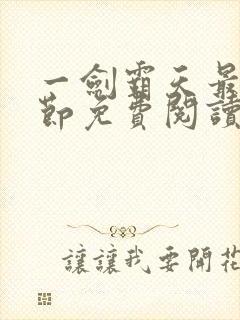 一劍霸天最
節免費閱讀
讓讓我要開花